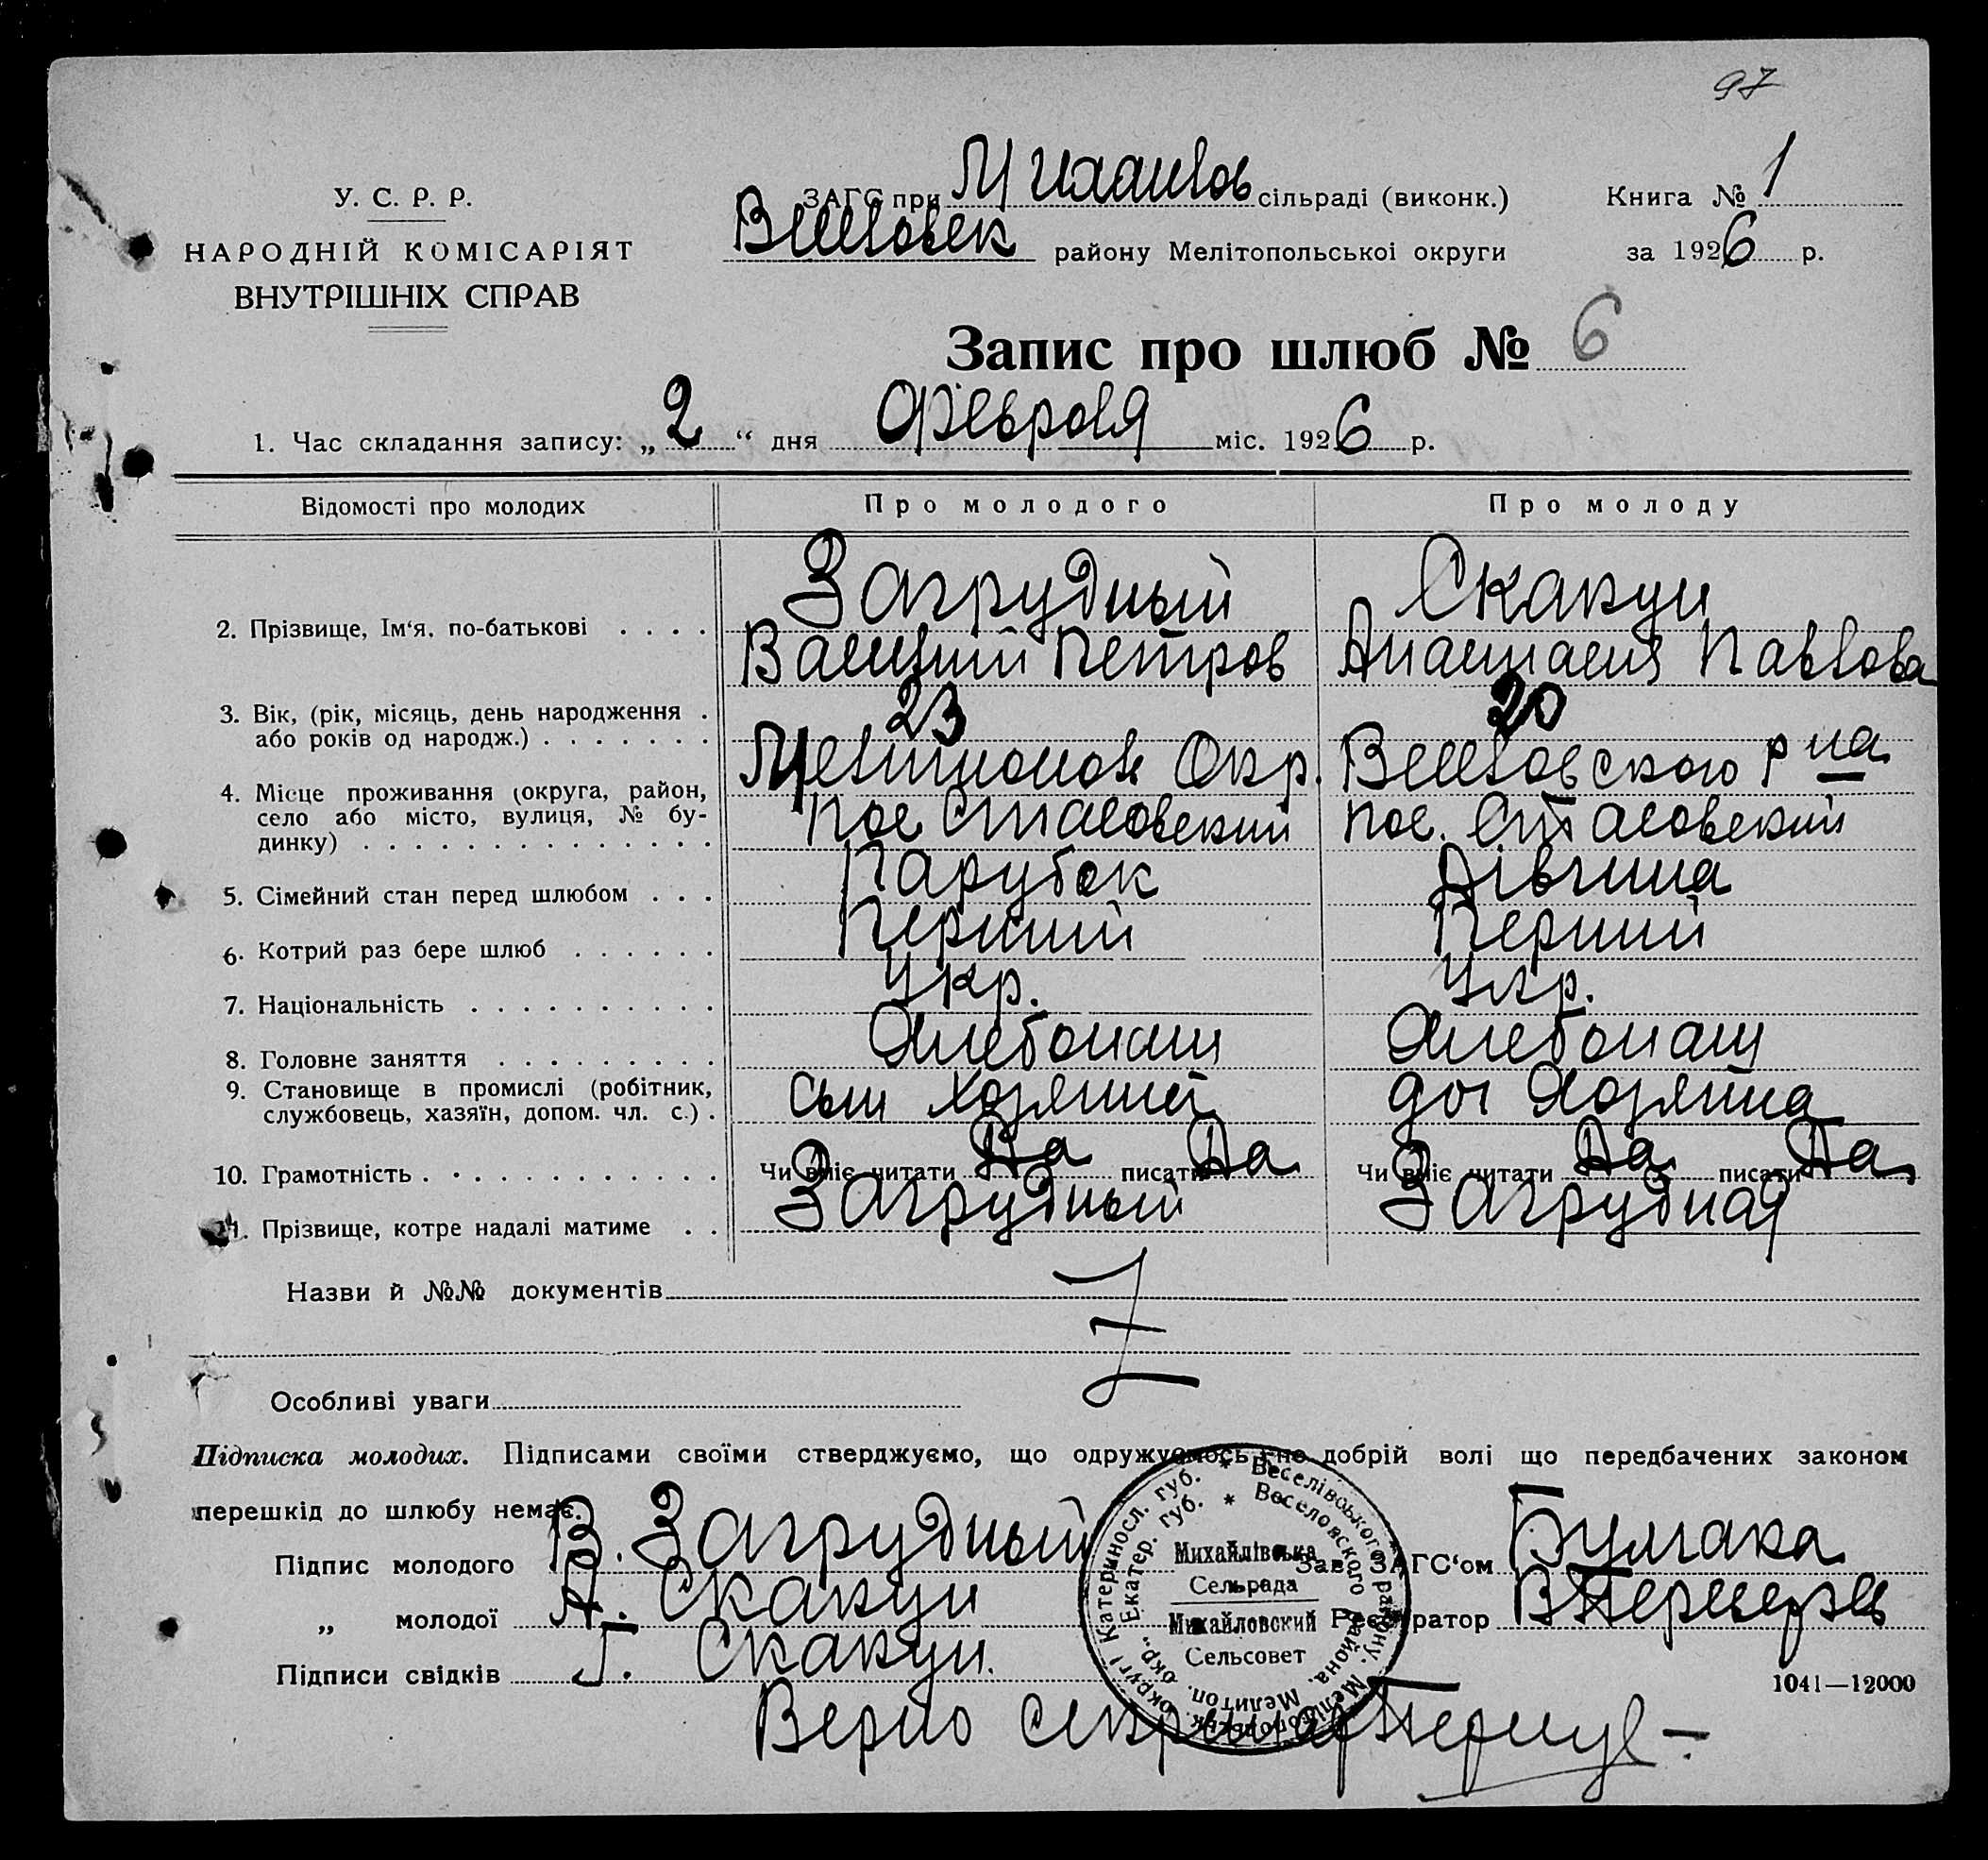 97
У. С. Р. Р.
НАРОДНІЙ КОМІСАРІЯТ
ВНУТРІШНІХ СПРАВ
ЗАГС при Михайлов сільраді (виконк.)
Веселовск району Мелітопольської округи
Книга № 1
за 1926 р.
Запис про шлюб № 6
1. Час складання запису: „ 2 “ дня Февраля міс. 1926 р.
Відомості про молодих Про молодого Про молоду
2. Прізвище, Ім'я, по-батькові . . . . Загрудный Скакун
Василий Петров Анастасия Павлова
3. Вік, (рік, місяць, день народження . 23 20
або років од народж.) . . . . . . .
4. Місце проживання (округа, район, Мелитополь Окр. Веселовского р на
село або місто, вулиця, № бу- пос Стасовский пос. Стасовский
динку) . . . . . . . . . . . . . .
5. Сімейний стан перед шлюбом . . . Парубок Дівчина
6. Котрий раз бере шлюб . . . . . . Перший Перший
7. Національність . . . . . . . . . . Укр. Укр.
8. Головне заняття . . . . . . . . . Хлебопаш Хлебопаш
9. Становище в промислі (робітник, сын Хозяина доч Хозяйна
службовець, хазяїн, допом. чл. с.) .
10. Грамотність . . . . . . . . . . . . Чи вміє читати Да писати Да Чи вміє читати Да писати Да
11. Прізвище, котре надалі матиме . . Загрудный Загрудная
Назви й №№ документів
Особливі уваги
Підписка молодих. Підписами своїми стверджуємо, що одружуємось по добрій волі що передбачених законом
перешкід до шлюбу немає.
Підпис молодого В. Загрудный Зав. ЗАГС'ом
„ молодої А. Скакун Реєстратор
Підписи свідків Г. Скакун.
1041—12000
Верно секретар
Катериносл. губ. * Веселівського району, Мелітопольськ. округ
Екатер. губ. * Веселовского района, Мелитоп. окр.
Михайлівська
Сельрада
Михайловский
Сельсовет